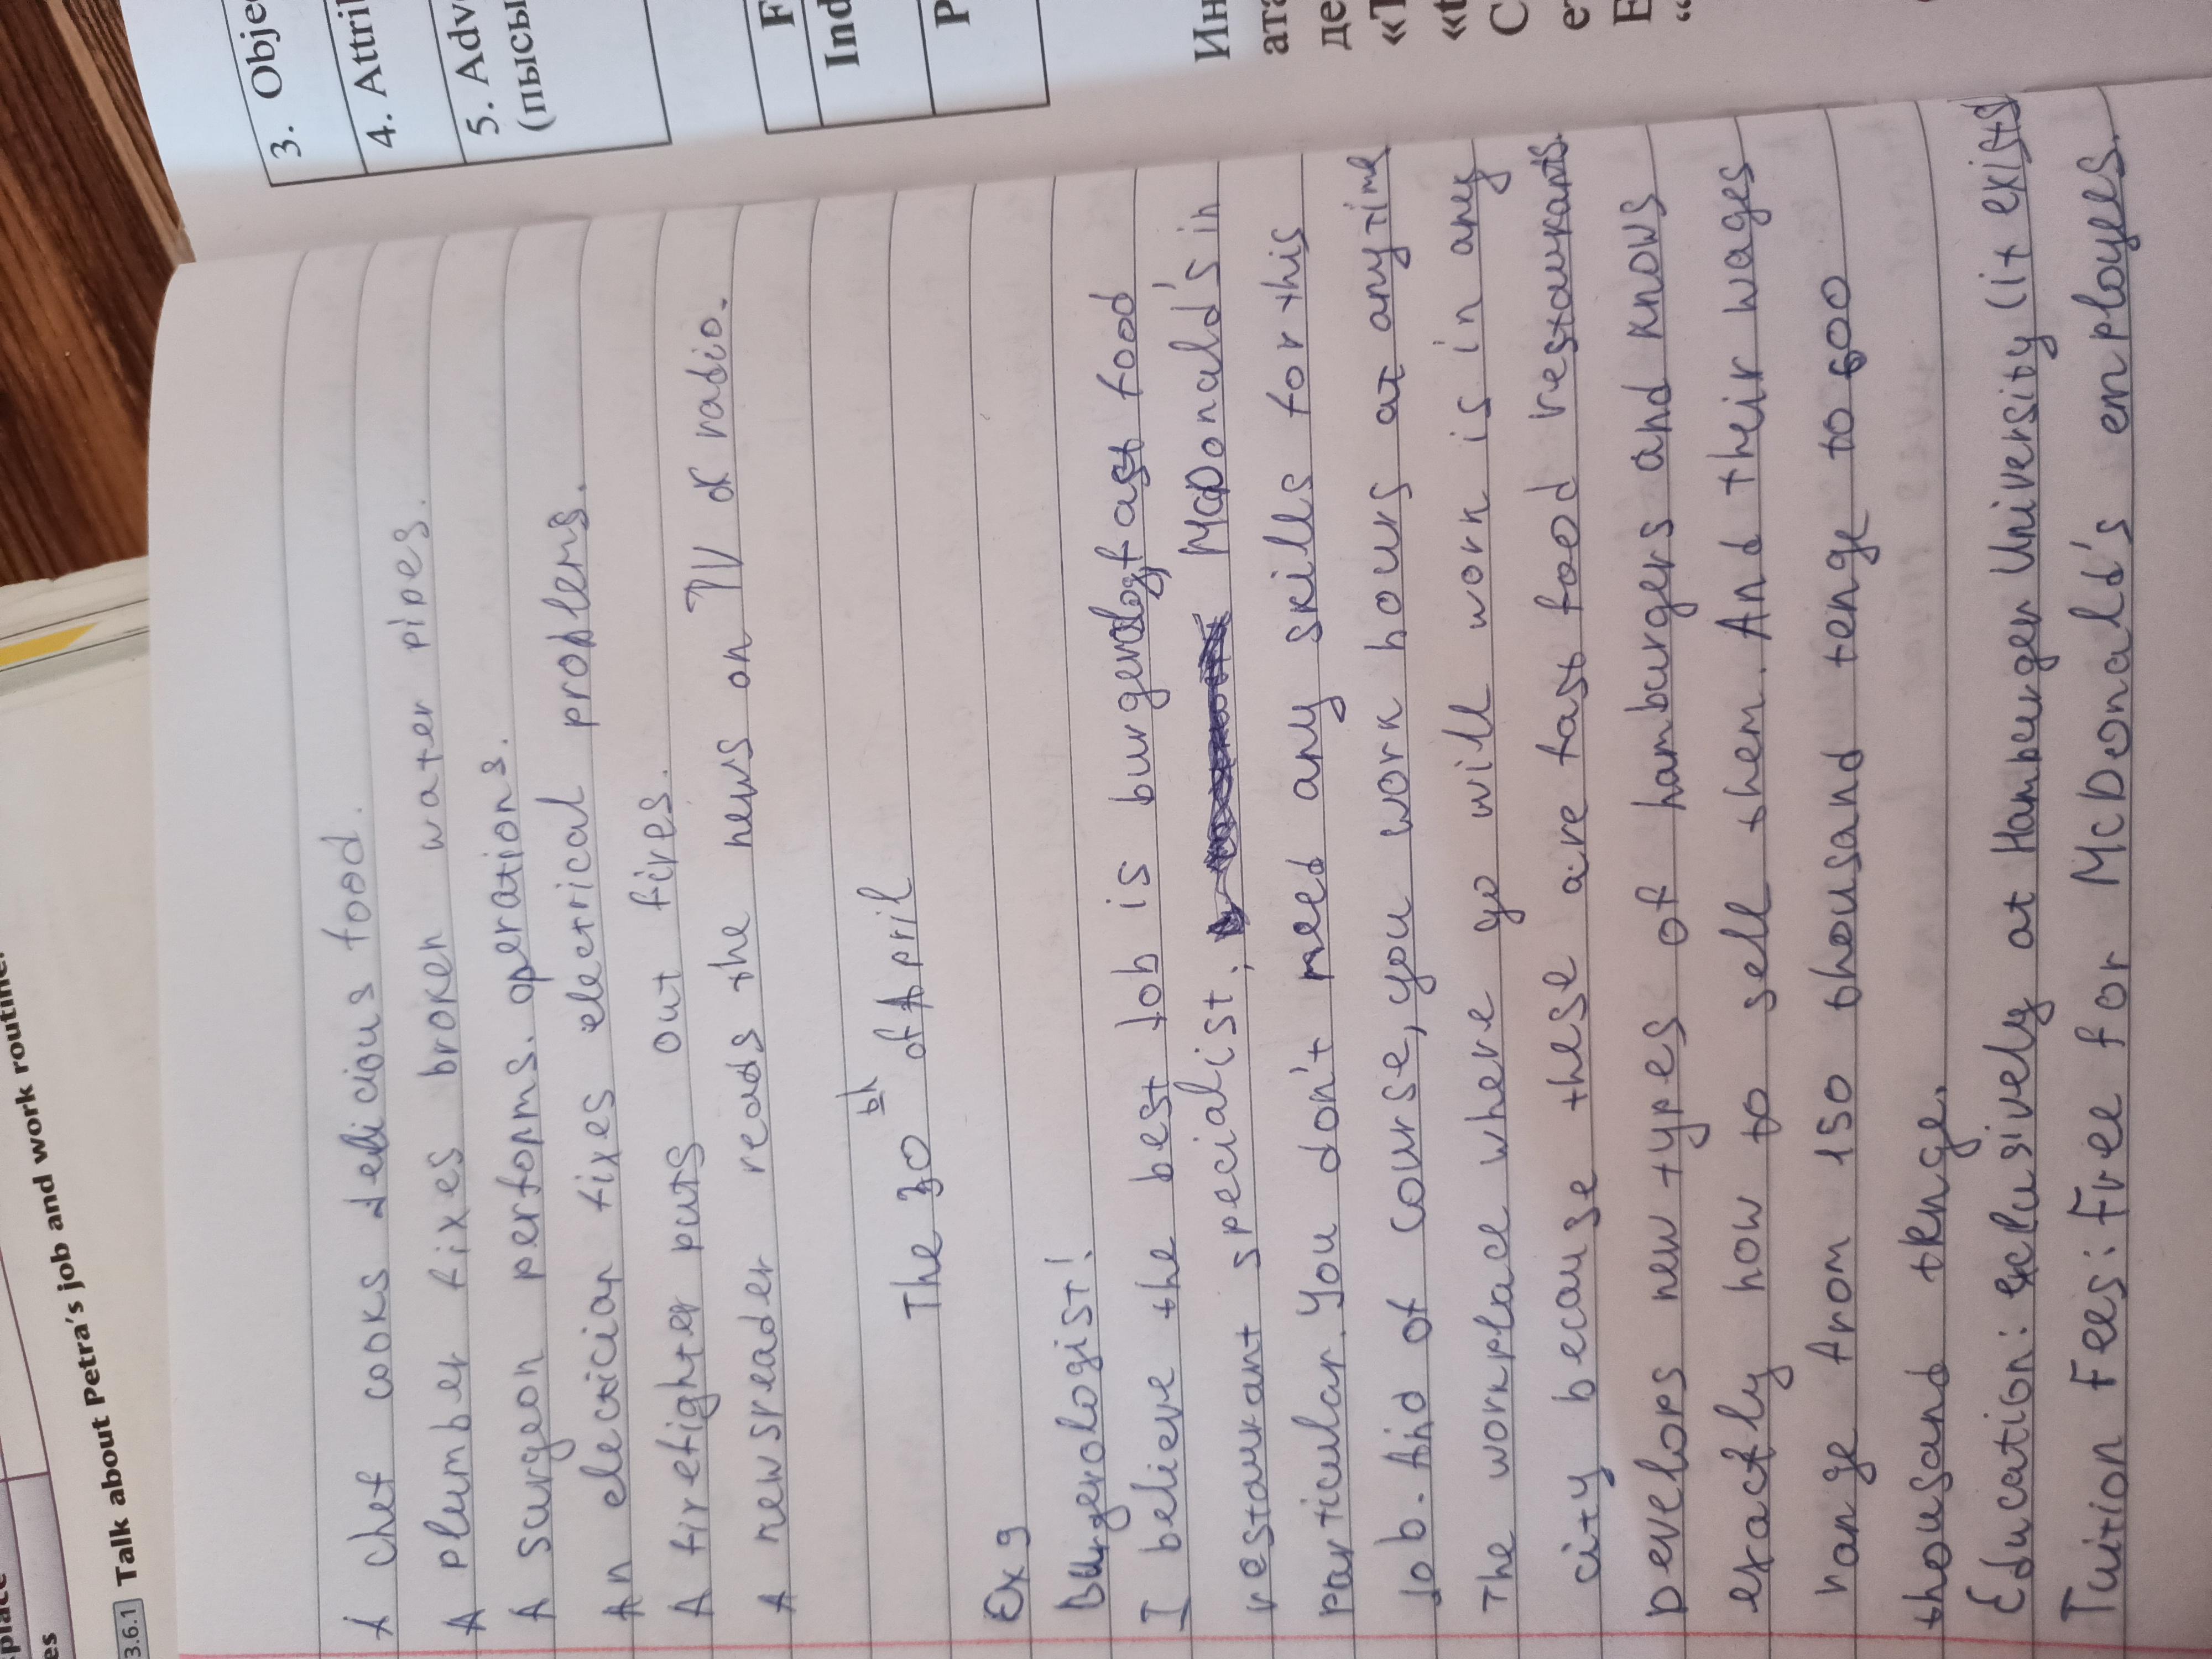 place
es
3.6.1 Talk about Petra's job and work routine.
3. Obje
4. Attril
5. Adv
(пысы
F
Ind
P
Ин
ата
де
«Т
«t
С
е
Е
“
A chef cooks delicious food.
A plumber fixes broken water pipes.
A surgeon performs. operations.
An electrician fixes electrical problems.
A firefighter puts out fires.
A newsreader reads the news on TV or radio.
The 30th of April
Ex 9
Burgerologist!
I believe the best job is burgerologf ast food
restaurant specialist. McDonald's in
particular. You don't need any skills for this
job. And of course, you work hours at any time
The workplace where yo will work is in any
city because these are fast food restaurants.
Develops new types of hamburgers and knows
exactly how to sell them. And their wages
range from 150 thousand tenge to 600
thousand tenge.
Education: exclusively at Hamberger University (it exists)
Tuition Fees: Free for McDonald's employees.